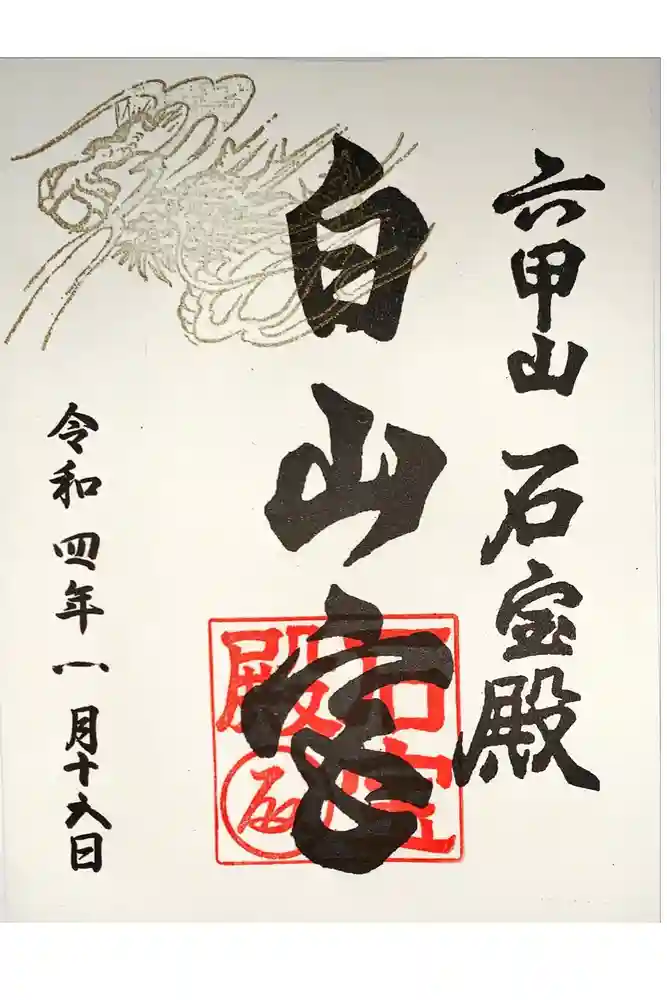 六甲山 石宝殿
白山宮
石宝殿
令和四年八月十六日